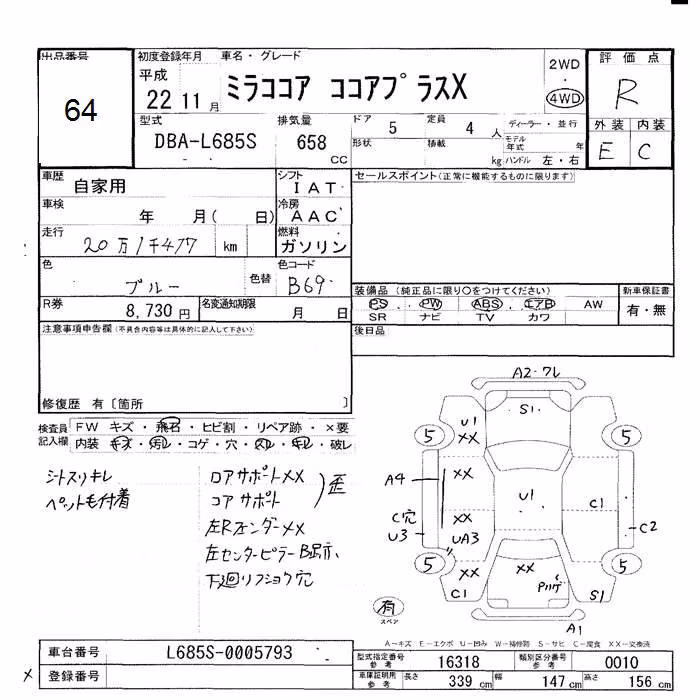 出品番号
64
初度登録年月
平成
22 11月
車名・グレード
ミラココア ココアプラスX
2WD
4WD
評価点
R
型式
DBA-L685S
排気量
658
CC
ドア
5
定員
4
人
ディーラー・並行
形状
積載
kg
モデル年式
年
ハンドル 左・右
外装
内装
E
C
車歴
自家用
シフト
IAT
車検
年 月( 日)
冷房
AAC
走行
20万1千477
km
燃料
ガソリン
色
ブルー
色替
色コード
B69
R券
8,730円
名変通知期限
月 日
セールスポイント(正常に機能するものに限ります)
装備品(純正品に限り○をつけてください)
PS PW ABS エアB AW
SR ナビ TV カワ
新車保証書
有・無
後日品
注意事項申告欄(不具合内容等は具体的に記入して下さい)
修復歴 有〔箇所 〕
検査員記入欄
FW キズ・飛石・ヒビ割・リペア跡・×要
内装・キズ・汚レ・コゲ・穴・スレ・キレ・破レ
シトスリキレ
ペット毛付着
ロアサポートXX
コアサポート
歪
左RフェンダーXX
左センターピラーB跡
下廻リフショク穴
A2・ワレ
S1
U1
XX
5
5
A4
XX
U1
C1
C穴
U3
XX
UA3
C2
5
XX
C1
XX
Pハゲ
5
S1
有
スペア
A1
A-キズ E-エクボ U-凹み W-補修跡 S-サビ C-腐食 XX-交換済
車台番号
L685S-0005793
登録番号
X
型式指定番号
参考
16318
類別区分番号
参考
0010
車庫証明用
参考
長さ
339cm
幅
147cm
高さ
156cm